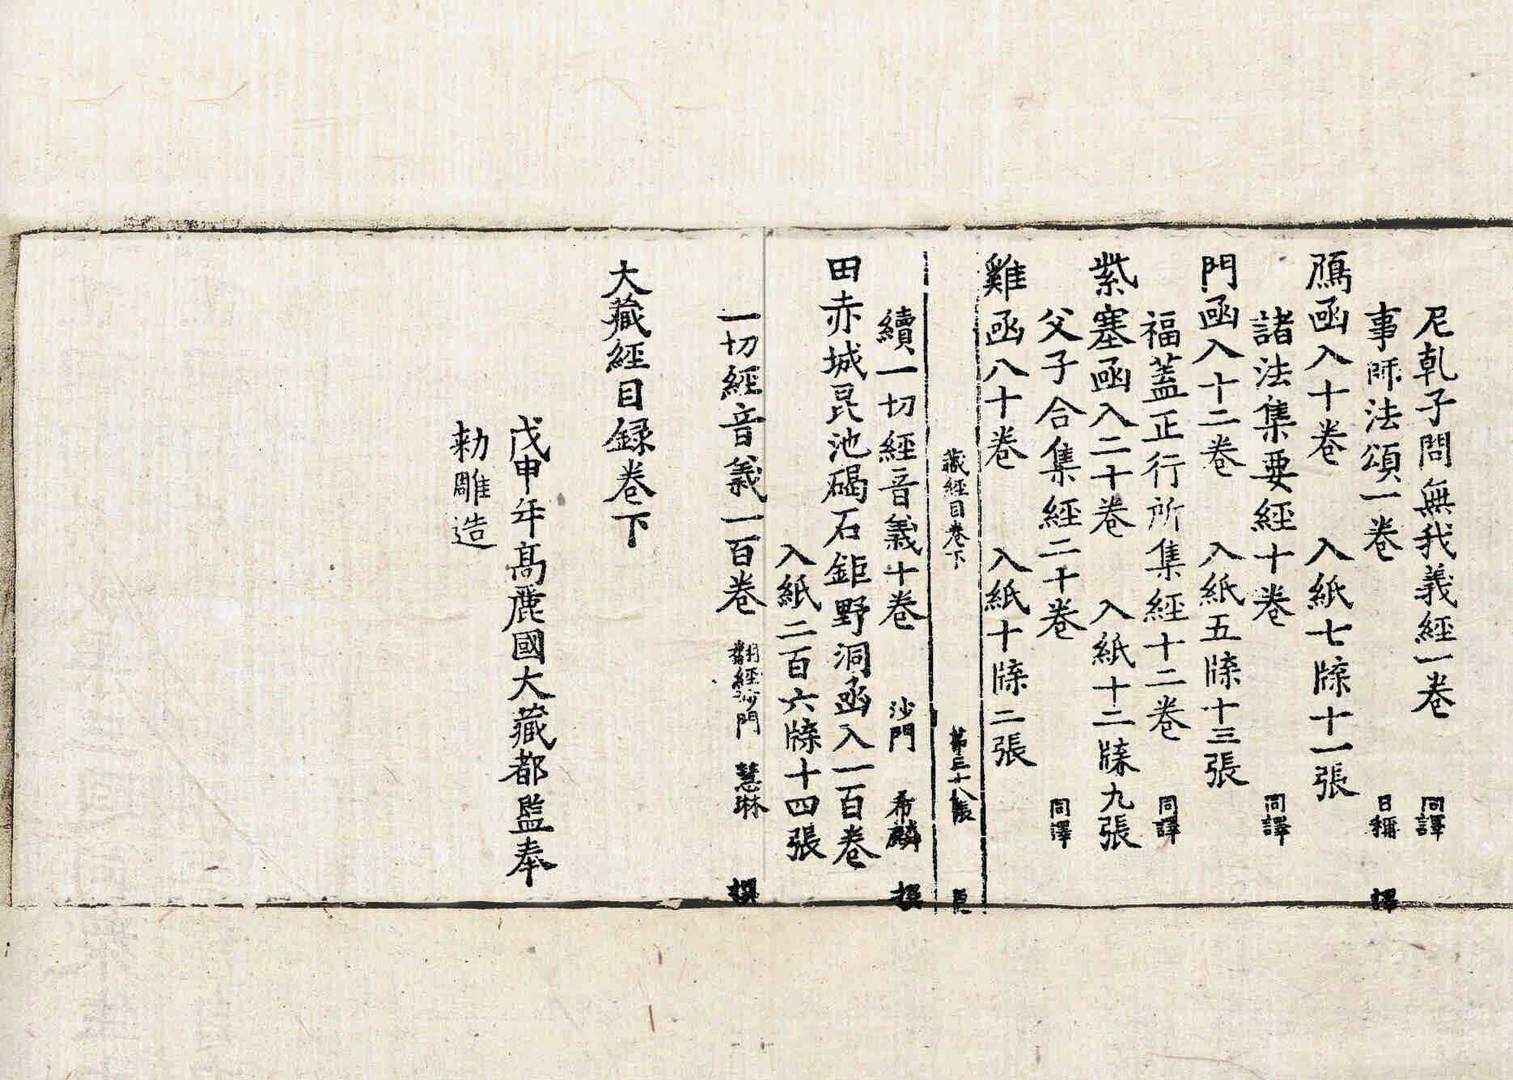 尼乹子問無我義經一卷 同譯
事師法頌一卷 日稱 譯
鴈函入十卷 入紙七牒十一張
諸法集要經十卷 同譯
門函入十二卷 入紙五牒十三張
福蓋正行所集經十二卷 同譯
紫塞函入二十卷 入紙十二牒九張
父子合集經二十卷 同譯
雞函入十卷 入紙十牒二張
藏經目卷下 第三十八張
續一切經音義十卷 沙門 希麟 撰
田赤城昆池碣石鉅野洞函入一百卷
入紙二百六牒十四張
一切經音義一百卷 翻經沙門 慧琳 撰
大藏經目録卷下
戊申年高麗國大藏都監奉
勑雕造